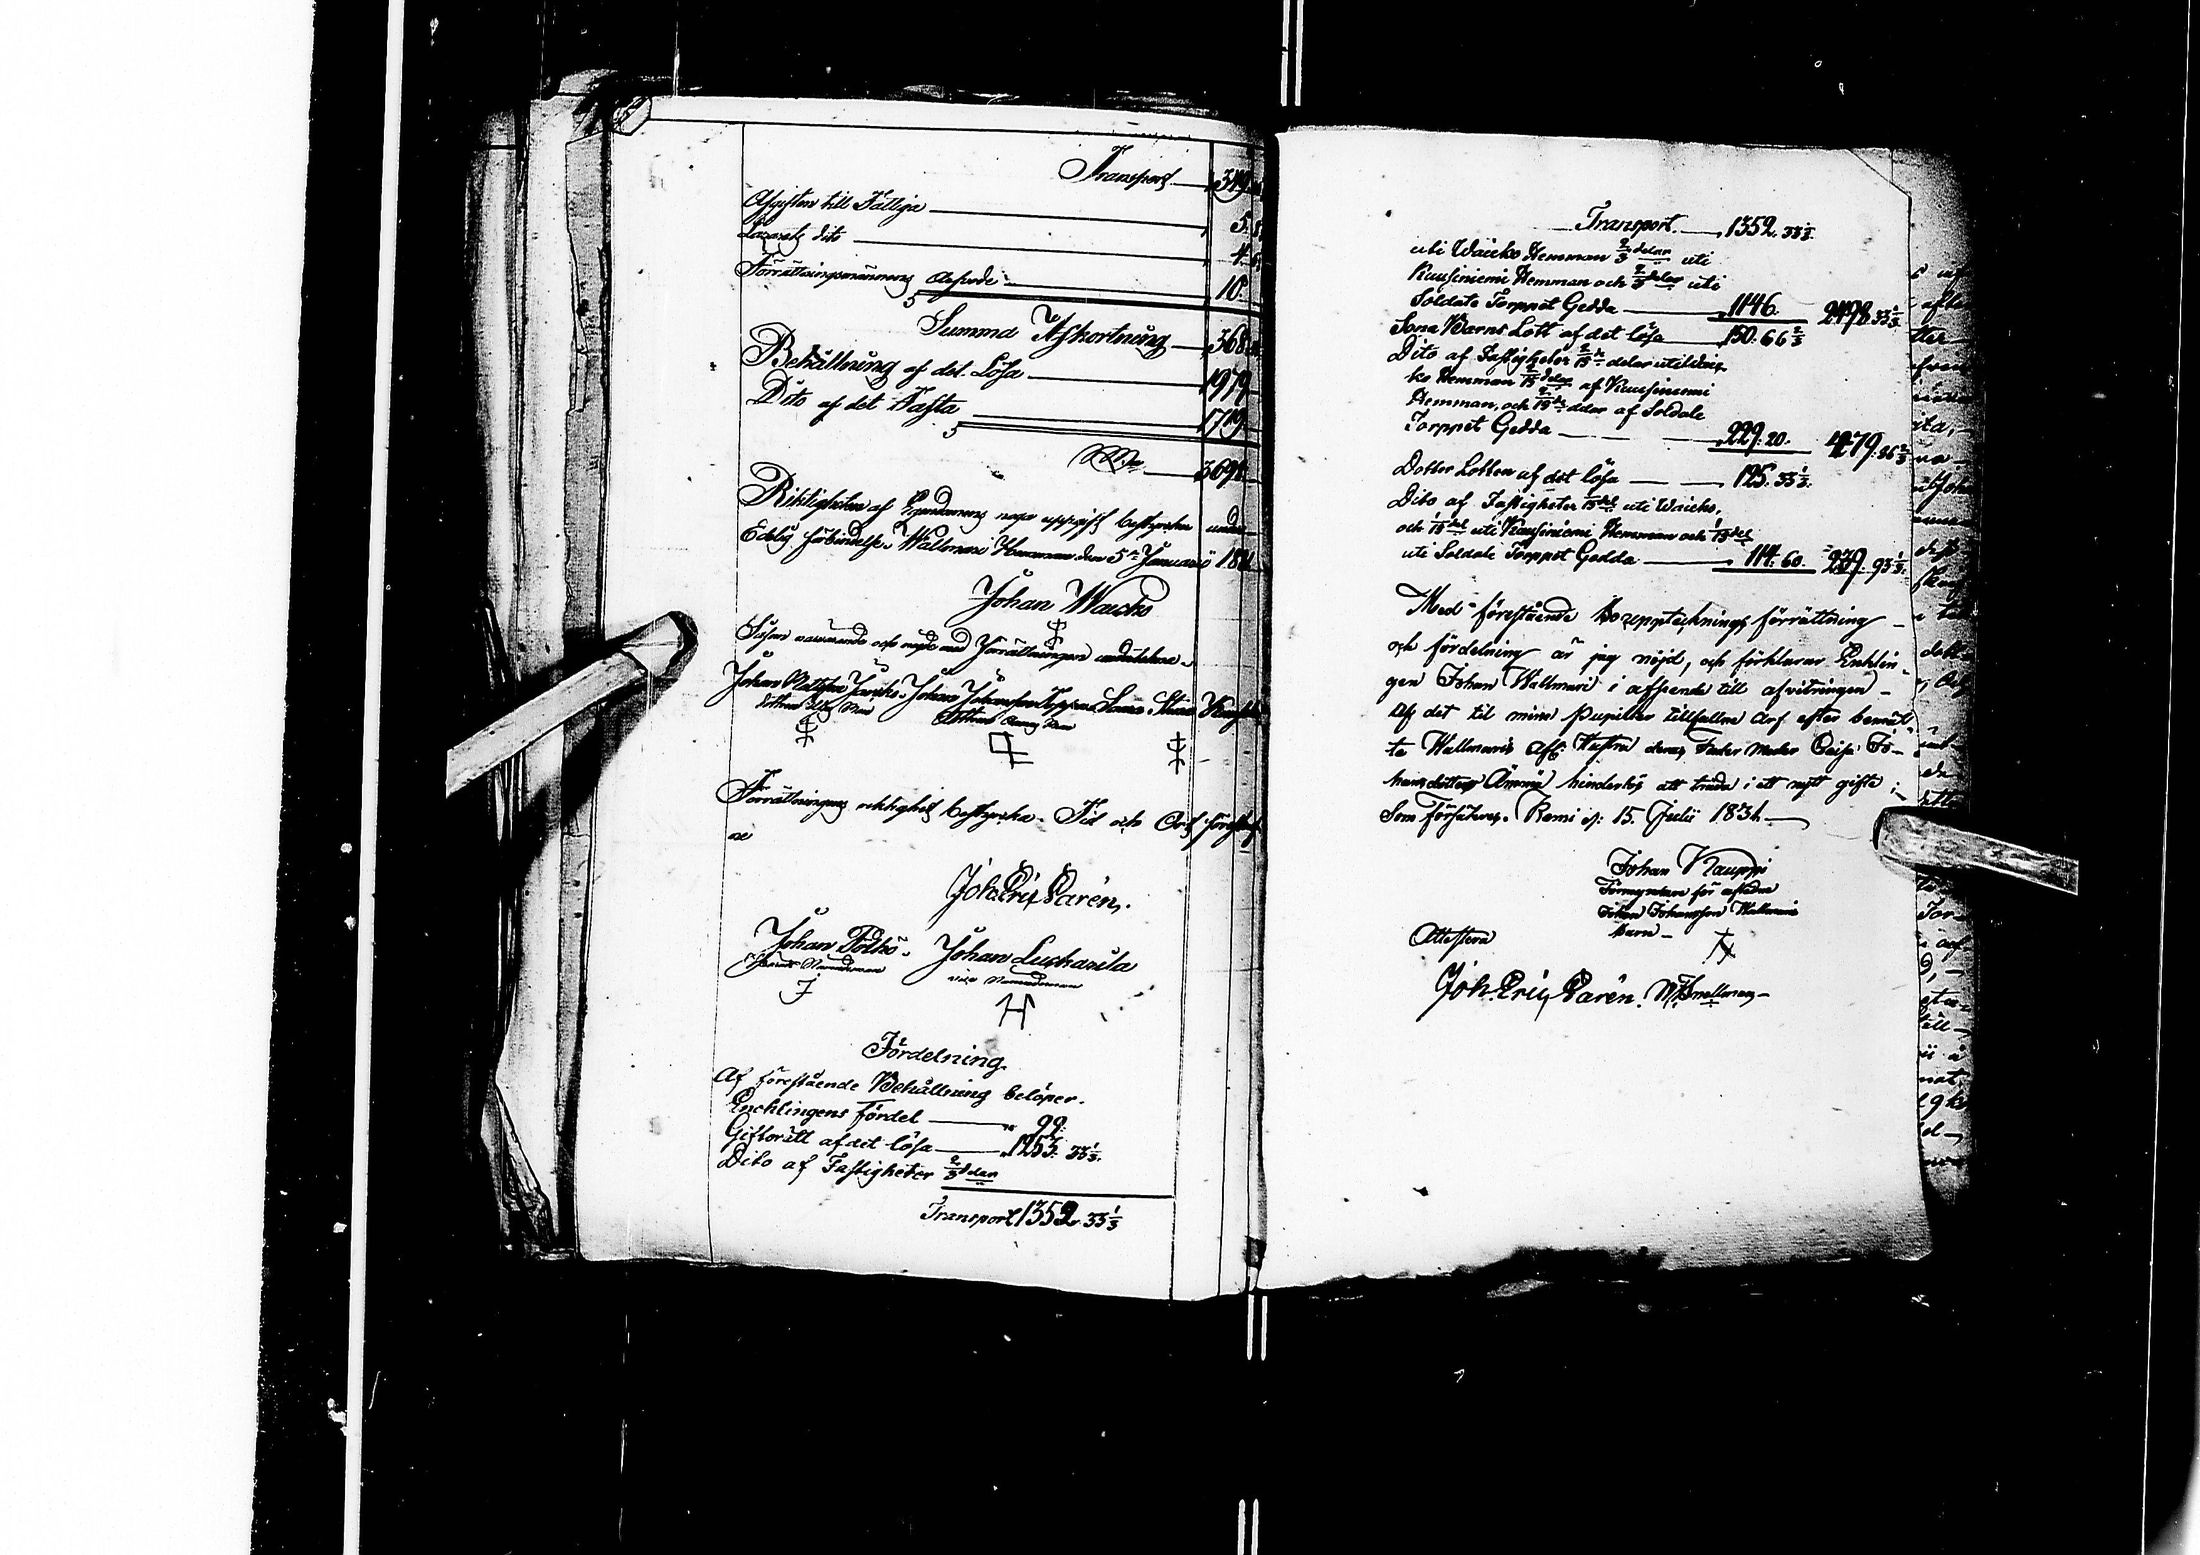 Transport 349
Afgiften till Fattiga 5.
Lazarets dito 4.
Förrättningsmännens Arfvode 10.
Summa Afkortning 368
Behållning af det Lösa 1979
Dito af det Fasta 1719
3698
Riktigheten af Egendomens noga uppgift bestyrkes under
Edelig förbindelse. Wallmari Hemman den 5te Januarii 18
Johan Waicko
Såsom närvarande och nöjde med Förrättningen undertekna
Johan Johansson
Förrättningens riktighet bestyrka. Tid och Ort förest
Joh. Eric Parén.
Johan Johan Luskasila
Nämndeman
vice Nämndeman
Fördelning.
Af förestående Behållning belöper.
Encklingens fördel 99.
Giftorätt af det lösa 1253. 33 1/3.
Dito af Fastigheter 2/3 delar
Transport 1352. 33 1/3
Transport 1352. 33 1/3.
uti Waicko Hemman 2/3 delar uti
Kausiniemi Hemman och 2/3 delar uti
Soldate Torppet Gedda 1146. 2498. 33 1/3.
Sona Barns Lott af det lösa 150. 66 2/3
Dito af Fastigheter 2/15 delar uti Waic-
ko Hemman 2/15 delar af Kausiniemi
Hemman, och 2/15 delar af Soldate
Torppet Gedda 229. 20. 479. 86 2/3
Dotter Lotten af det lösa 125. 33 1/3.
Dito af Fastigheter 1/15 del uti Waicko,
och 1/15 del uti Kausiniemi Hemman och 1/15 del
uti Soldate Torppet Gedda 114. 60. 239. 93 1/3.
Med förestående Boupptecknings förrättning
och fördelning är jag nöjd, och förklarar Enklin-
gen Johan Wallmari i afseende till afvitringen
af det til mine Pupiller tillfallne Arf efter bemäl-
te Wallmaris Afl. Hustru deras Fader Moder Caisa Jo-
hansdotter hinderlös att träda i ett nytt gifte;
Som försäkras. Kemi d: 15. Julii 1831.
Johan Kauppi
Förmyndare för aflidne
Johan Johansson Wallmari
barn
Attestera
Joh. Eric Parén.